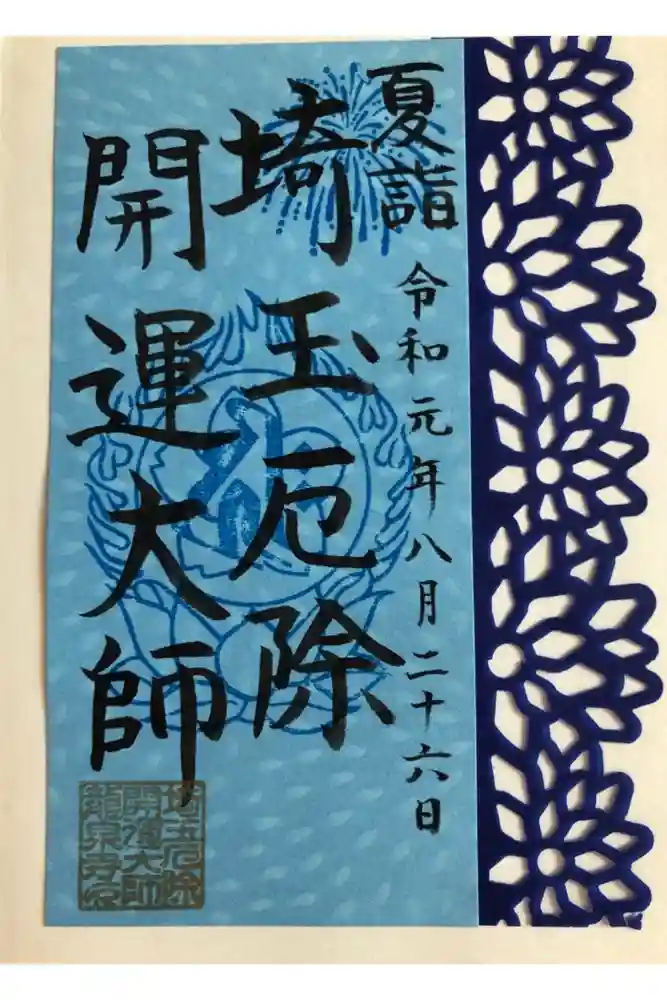 夏詣
令和元年八月二十六日
埼玉厄除
開運大師
埼玉厄除
開運大師
龍泉寺印